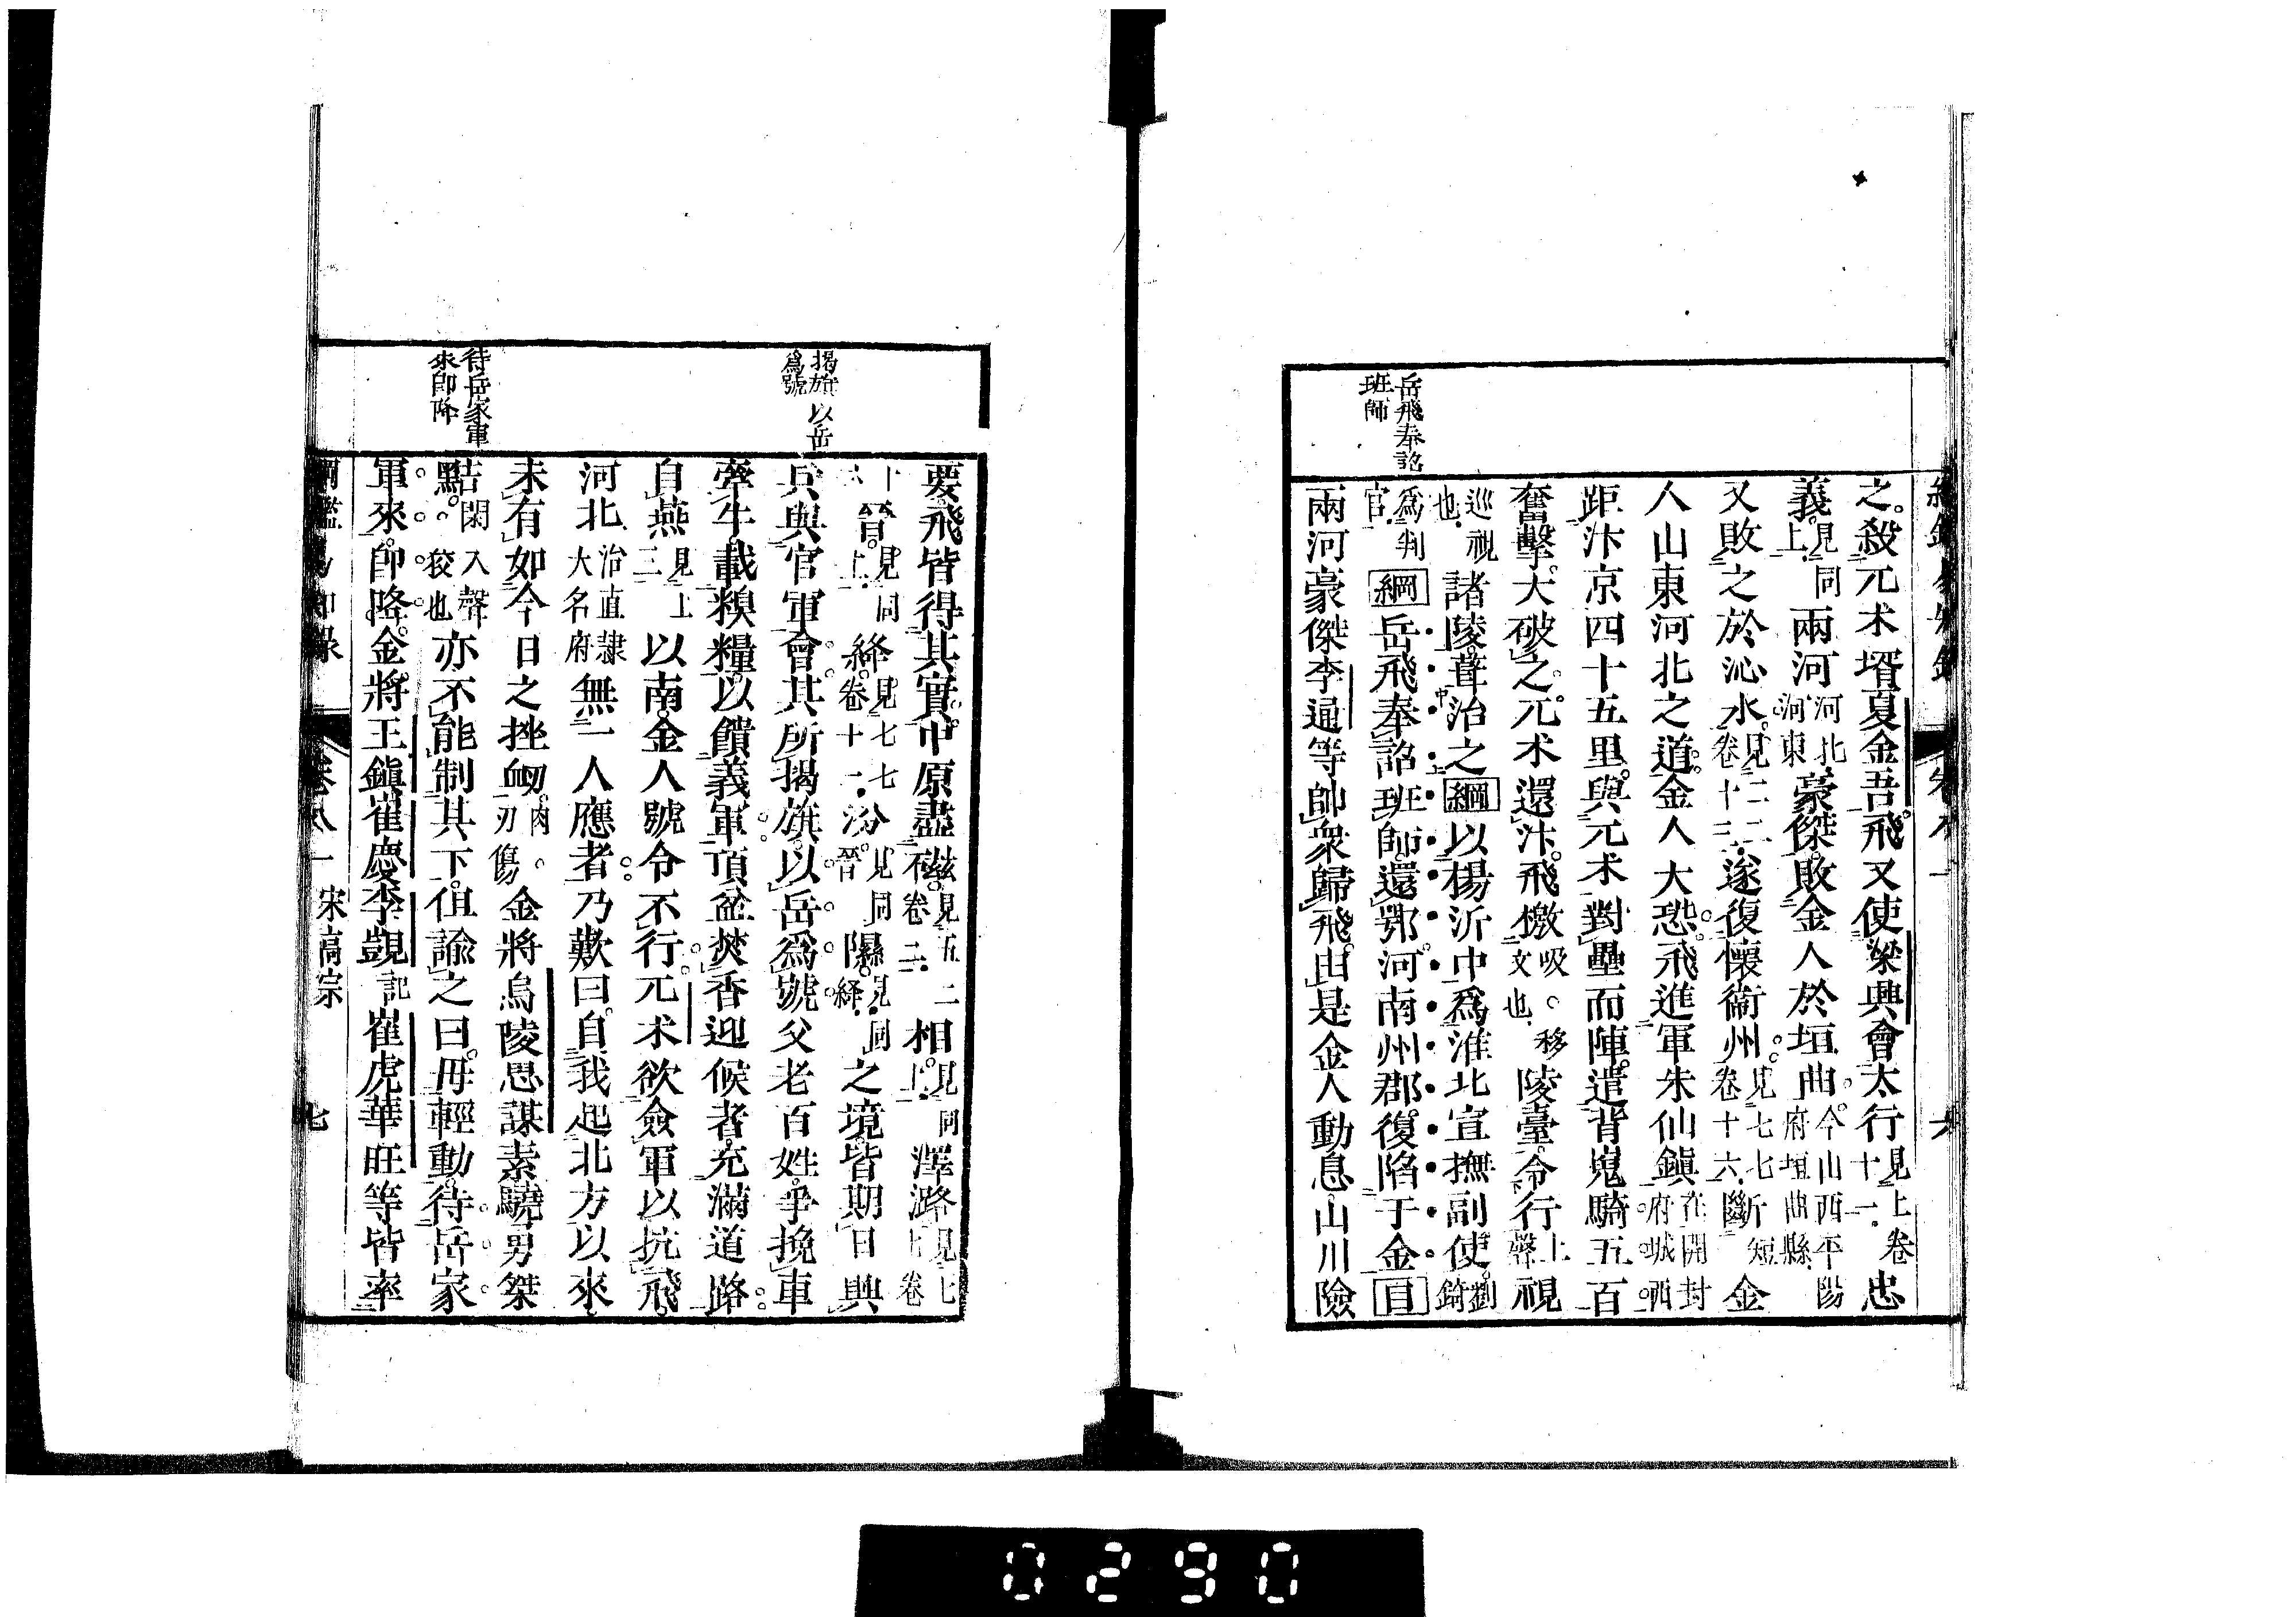 岳飛奉詔
班師
之。殺元朮壻夏金吾。飛又使梁興會太行見上卷十一。忠
義。見同上。兩河河北河東。豪傑。敗金人於垣曲。今山西平陽府垣曲縣。
又敗之於沁水。見二二卷十二。遂復懷衞州。見七七卷十六。斷短金
人山東河北之道。金人大恐。飛進軍朱仙鎭在開封府城西。
距汴京四十五里。與元朮對壘而陣。遣背嵬騎五百
奮擊。大破之。元朮還汴。飛檄吸。移文也。陵臺令行上聲視
巡視也。諸陵。葺治之綱以楊沂中爲淮北宣撫副使。劉錡
爲判官。綱岳飛奉詔班師。還鄂。河南州郡。復陷于金目
兩河豪傑李通等帥衆歸飛。由是金人動息。山川險
六
揭旗以岳
爲號
待岳家軍
來卽降
要。飛皆得其實。中原盡磁。見五二卷二。相。見同上。澤潞見七卷
十晉。見同上。絳。見七七卷十一。汾。見同晉。隰。見同絳。之境。皆期日興
兵。與官軍會。其所揭旗。以岳爲號。父老百姓。爭挽車
牽牛。載糗糧。以饋義軍。頂盆焚香迎候者。充滿道路。
自燕見上二以南。金人號令不行。元朮欲僉軍以抗飛。
河北治直隸大名府無一人應者。乃歎曰。自我起北方以來。
未有如今日之挫衂。肉。刃傷。金將烏陵思謀素驍勇桀
黠。閑入聲。狡也亦不能制其下。但諭之曰。毋輕動。待岳家
軍來。卽降。金將王鎭崔慶李覬記崔虎華旺等皆率
綱鑑易知錄 卷八一 宋高宗 七
0290